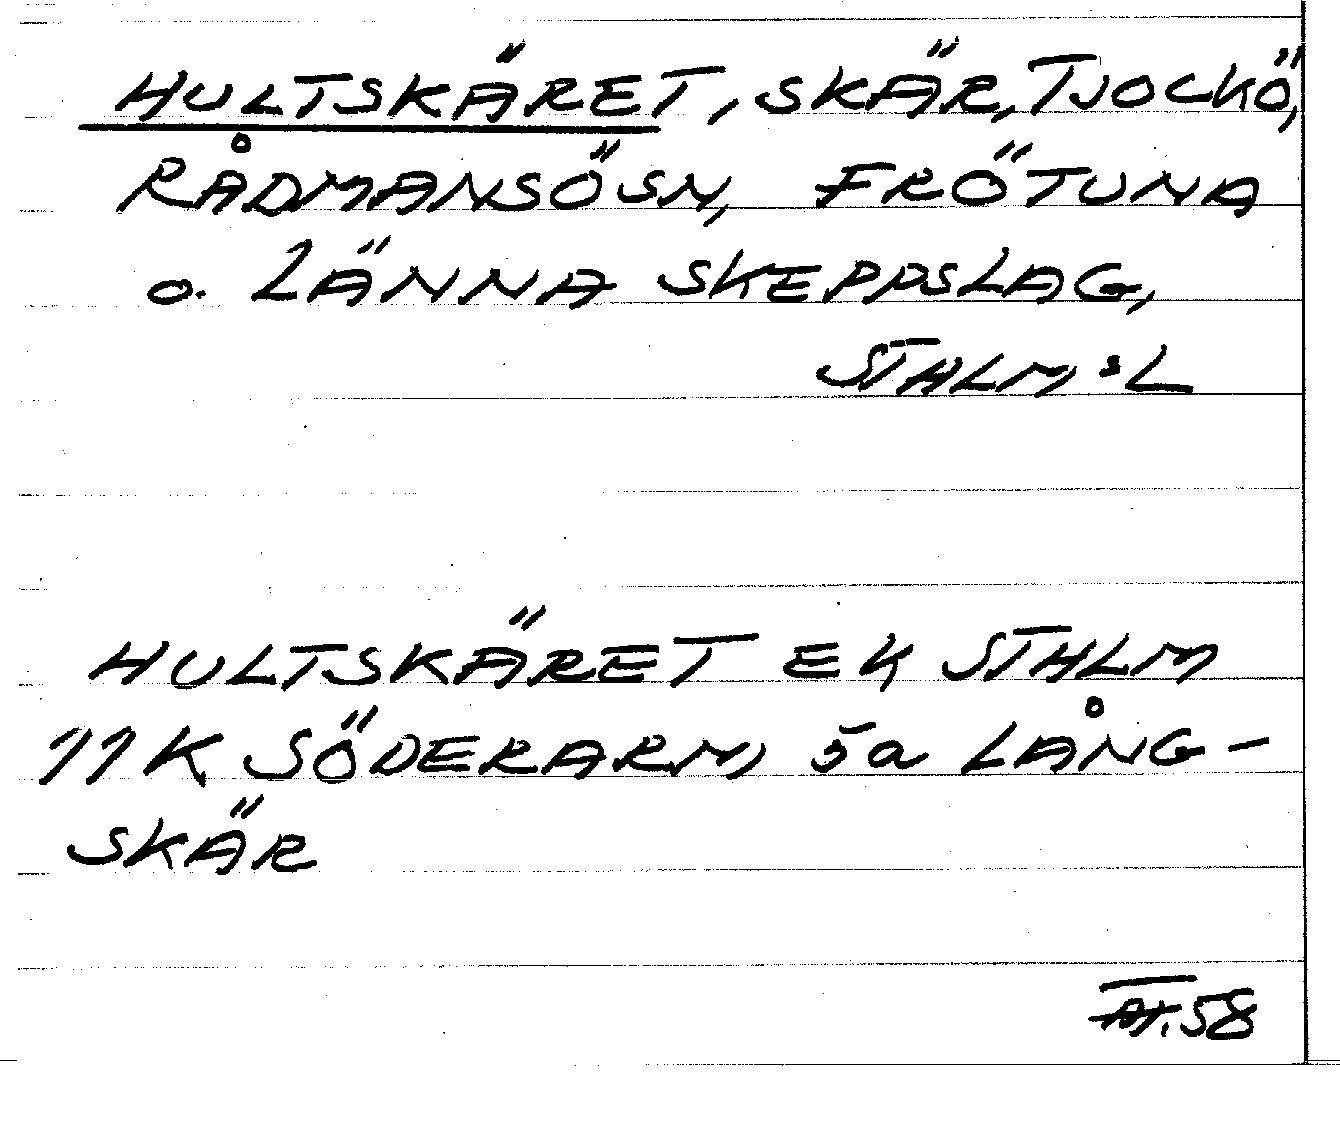 HULTSKÄRET, SKÄR, TJOCKÖ,
RÅDMANSÖ SN, FRÖTUNA
o. LÄNNA SKEPPSLAG,
STHLM:s L
HULTSKÄRET EK STHLM
11K SÖDERARM, 5a LÅNG-
SKÄR
58